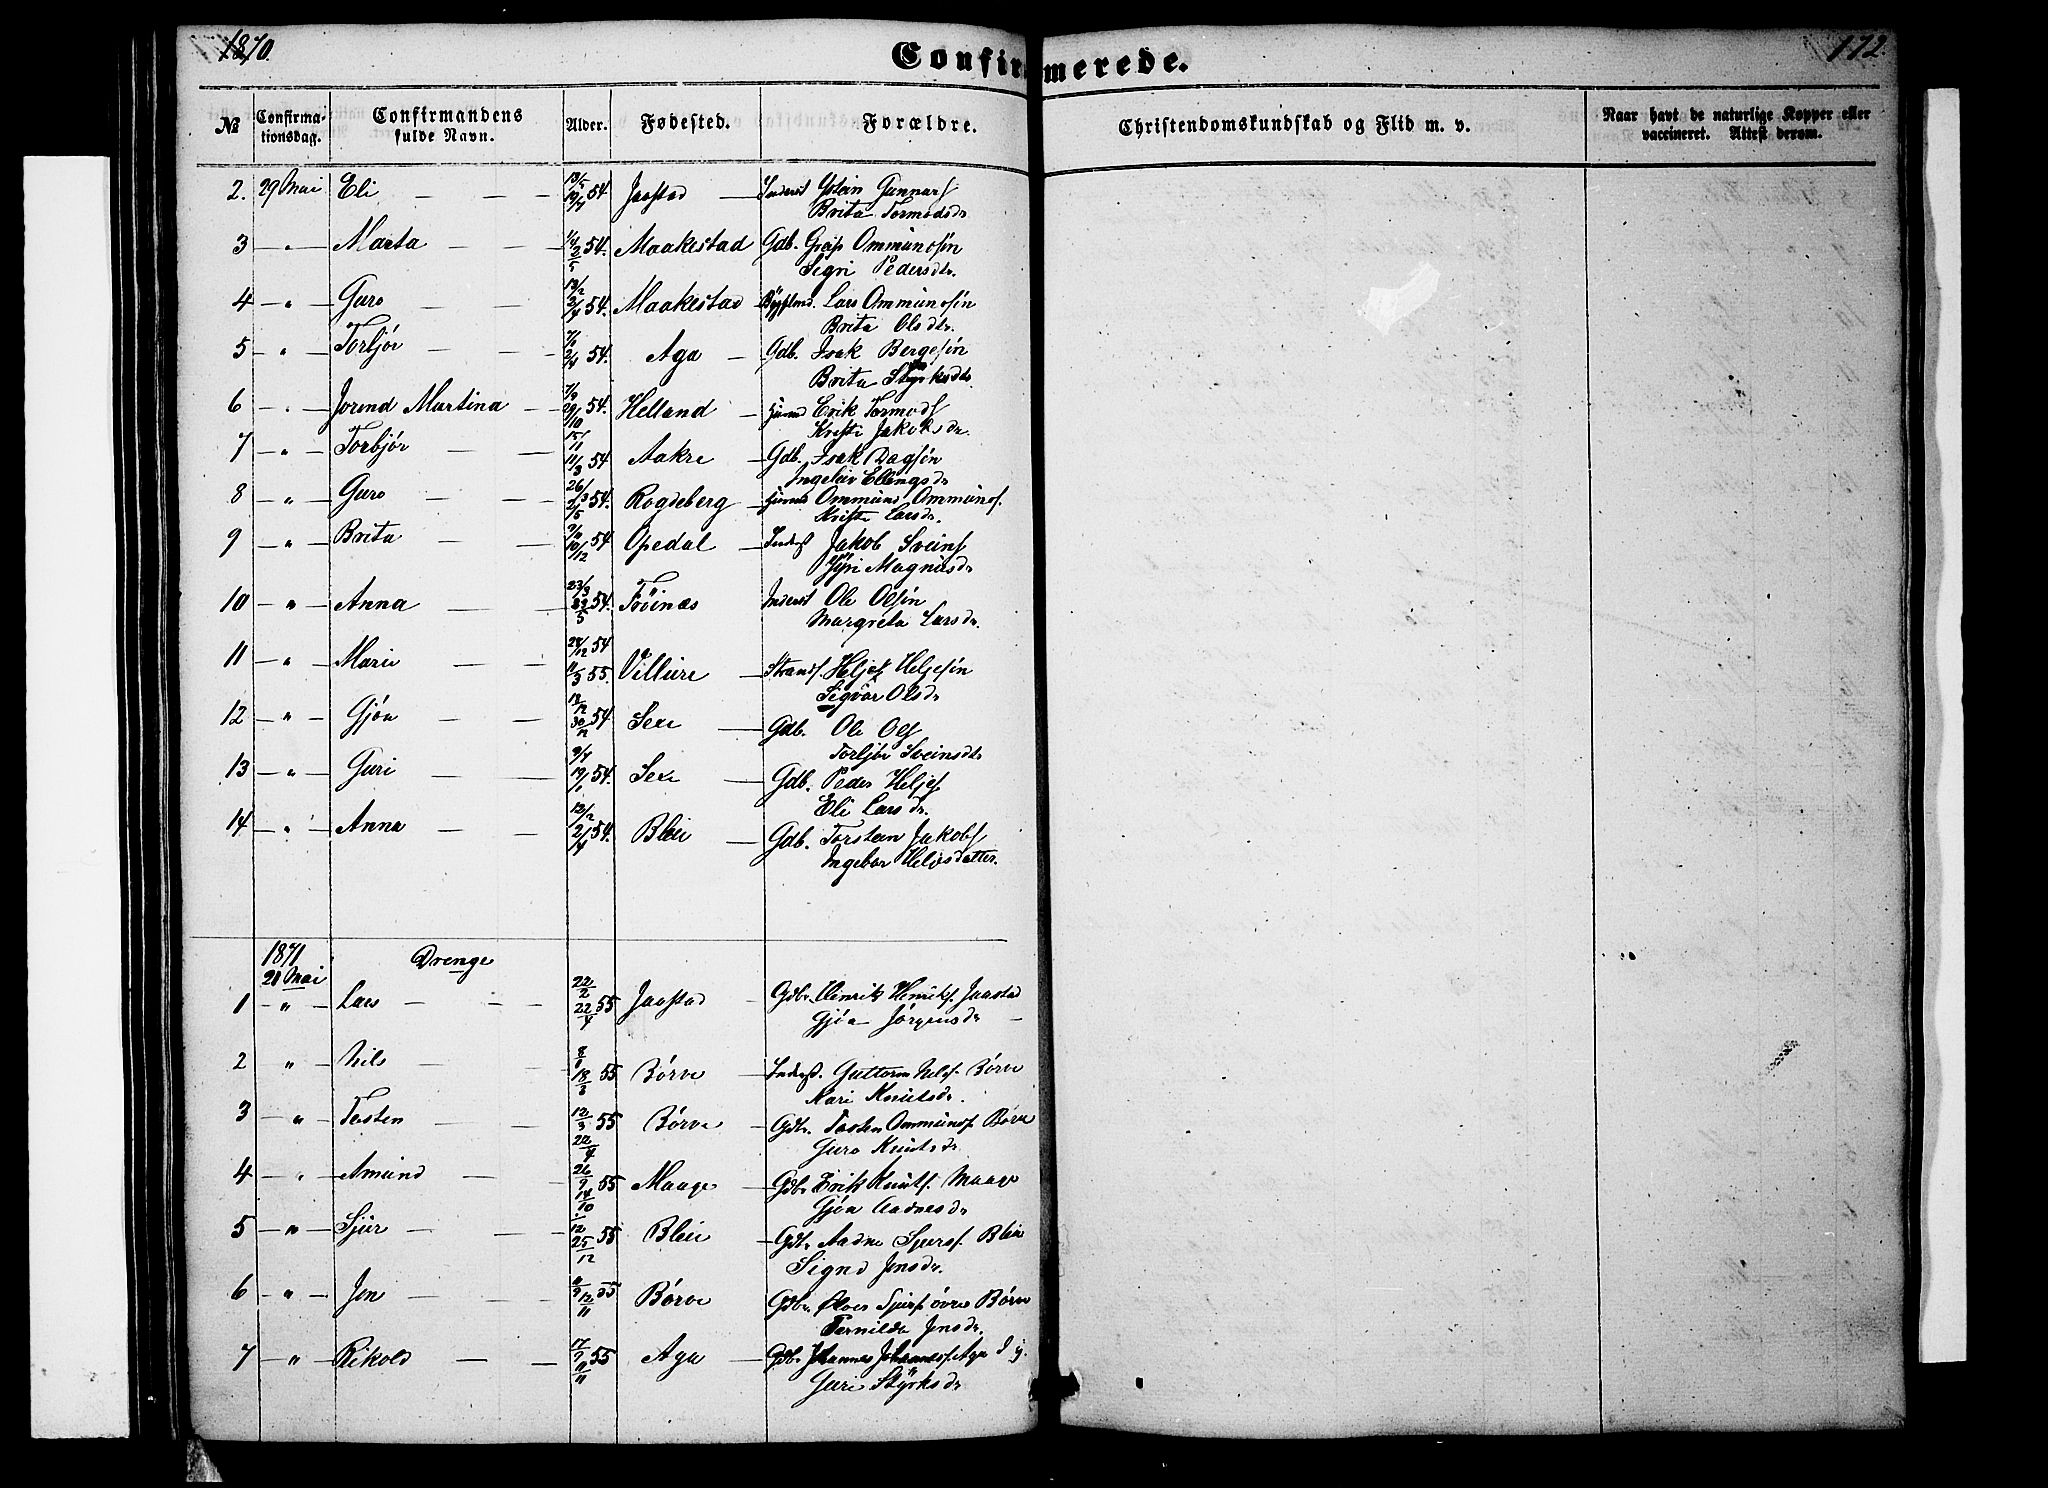 1870.
Confirmerede.
172.
No
Confirmationsdag.
Confirmandens fulde Navn.
Alder.
Fødested.
Forældre.
Christendomskundskab og Flid m. v.
Naar havt de naturlige Kopper eller vaccineret. Attest derom.
2. 29 Mai Eli 54. Jaastad Inderst Ystein Gunnars
Brita Tormodsdr
3 " Marta 54. Maakestad Gdb. Greip Ommundsøn
Sigri Pedersdtr.
4 " Guro 54. Maakestad Lars Ommundsøn
Brita Olsdtr.
5 " Torbjør 54. Aga Gdb. Isak Bergesøn
Brita Styrksdtr
6 " Jorend Martina 54. Helland Erik Tormods
Kristi Jakobsdr.
7 " Torbjør 15/11 11/3 54 Aakre Gdb. Isak Dagsøn
Ingeleiv Ellingsdr
8 " Guro 54. Rogdeberg Ommund Ommunds.
Kristi Larsdr.
9 " Brita 10/12 54 Opedal Inderst Jakob Sveins
Magnusdr
10 " Anna 54. Tröinæs Inderst Ole Olsön
Margreta Larsdr.
11 " Mari 28/12 54 55. Villure Strands. Heljes Heljesøn
Sigvør Olsdr
12 " Gjøa 54 Sexe Gdb. Ole Ols
Torbjør Sveinsdtr
13 " Guri 54. Sexe Gdb. Peder Heljes
Eli Larsdr.
14 " Anna 12/2 54. Bleie Gdb. Torstein Jakobs
Ingebor Helvesdatter.
1871
Drenge
21 Mai
1 " Lars 22/2 22/4 55 Jaastad Gdbr. Henrik Henriks. Jaastad
Gjøa Jørgensdr
2 " Nils 55 Børve Inderst. Guttorm Nels. Børve
Kari Knutsdr.
3 " Tosten 12/3 22/4 55 Børve Gdbr. Tosten Ommunds. Børve
Guro Knutsdr
4 " Amund 26/9 14/10 55 Maage Gdbr Erik Knuts. Maage
Gjøa Aadnesdr
5 " Sjur 25/12 55 Bleie Gdbr Aadne Sjurs. Bleie
Signe Jonsdr.
6 " Jon 12/11 55 Børve Gdbr. Øber Sjurs. øvre Børve
Tornilda Jonsdr.
7 " Rikold 55 Aga Gdbr Johannes Johannes. Aga
Guri Styrksdr